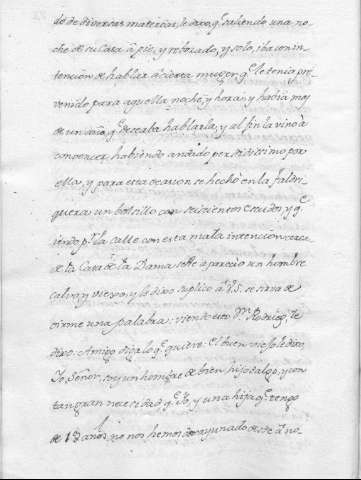 do de diversas materias, le dixo, q.e saliendo una no-
che de su Casa à pie, y rebozado, y solo, iba con in-
tencion de hablar à cierta muger, q.e le tenia pre-
venido para aquella noche, y hora; y habia mas
de un año q.e deseaba hablarla, y al fin la vino à
convencer habiendo andado perdidissimo por
ella, y para esta ocasion se hechò en la faldri-
quera un bolsillo con seiscientos escudos, y q.e
iendo p.r la calle con esta mala intencion cerca
de la Casa de la Dama se le apareciò un hombre
calvo, y viejo, y le dixo suplico à V.S. se sirva de
oirme una palabra: viendo esto D.n Rodrigo, le
dixo: Amigo diga lo q.e quiere: El buen viejo le dixo,
Yo, Señor, soy un hombre de bien hijodalgo, y con
tan gran necesidad q.e Yo, y una hija q.e tengo
de 18 años, no nos hemos desayunado desde à no-